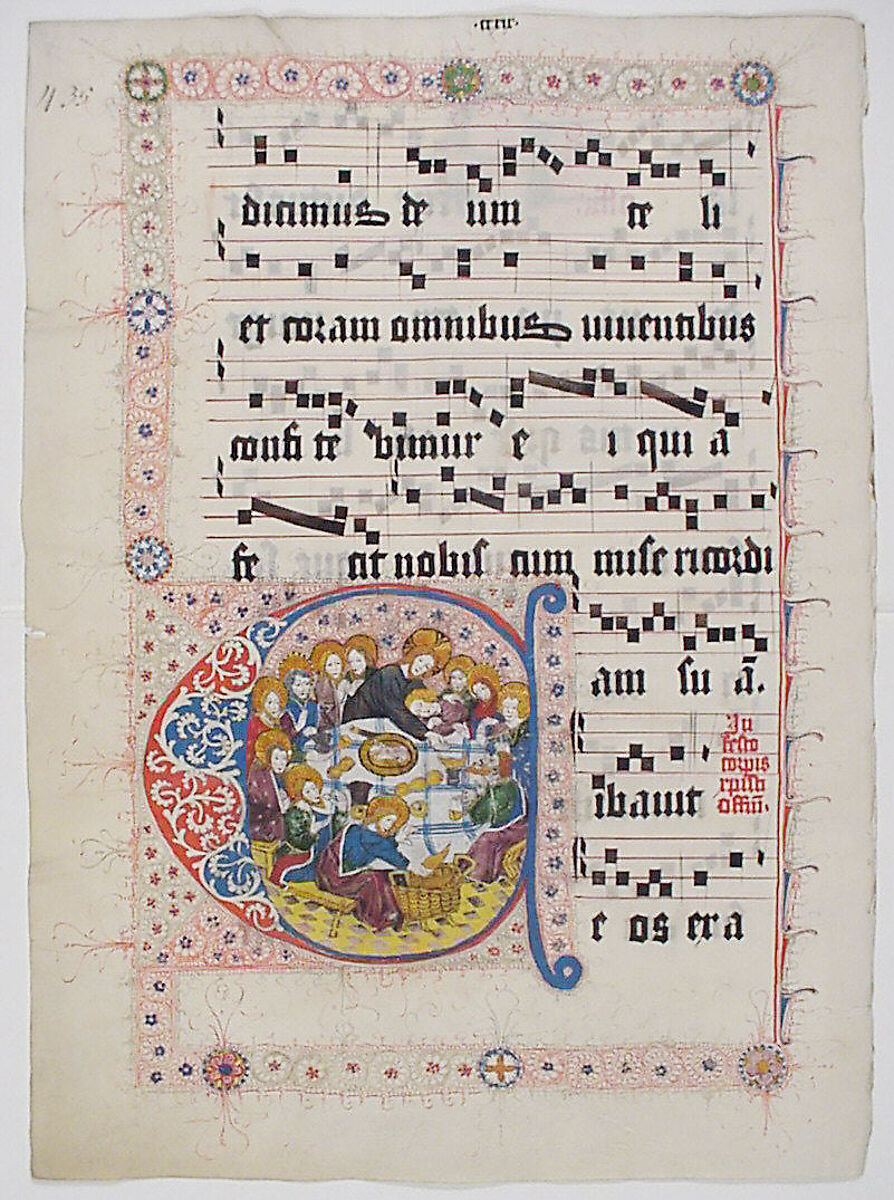 ·cxix·
435
dicimus de um ce li
et coram omnibus uiuentibus
confi te bimur e i qui a
fe cit nobis cum mise ricordi
am su ā.
In
festo
corpis
xpisti
offm̄.
ibauit
e os exa